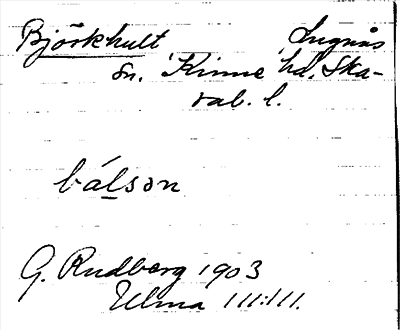 Björkhult Lugnås
sn. Kinne hd. Ska-
rab. l.
bálson
G. Rudberg 1903
Ulma 111:111.